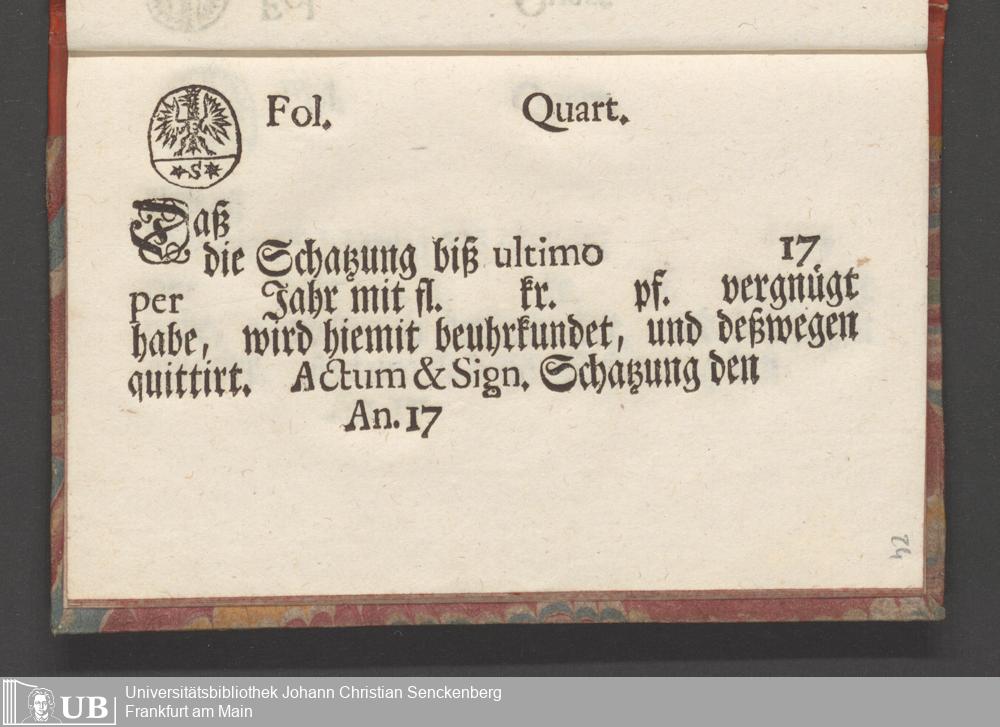 Fol. Quart.
*S*
Daß
die Schatzung biß ultimo 17
per Jahr mit fl. kr. pf. vergnügt
habe, wird hiemit beuhrkundet, und deßwegen
quittirt. Actum & Sign. Schatzung den
An. 17
42
UB
Universitätsbibliothek Johann Christian Senckenberg
Frankfurt am Main